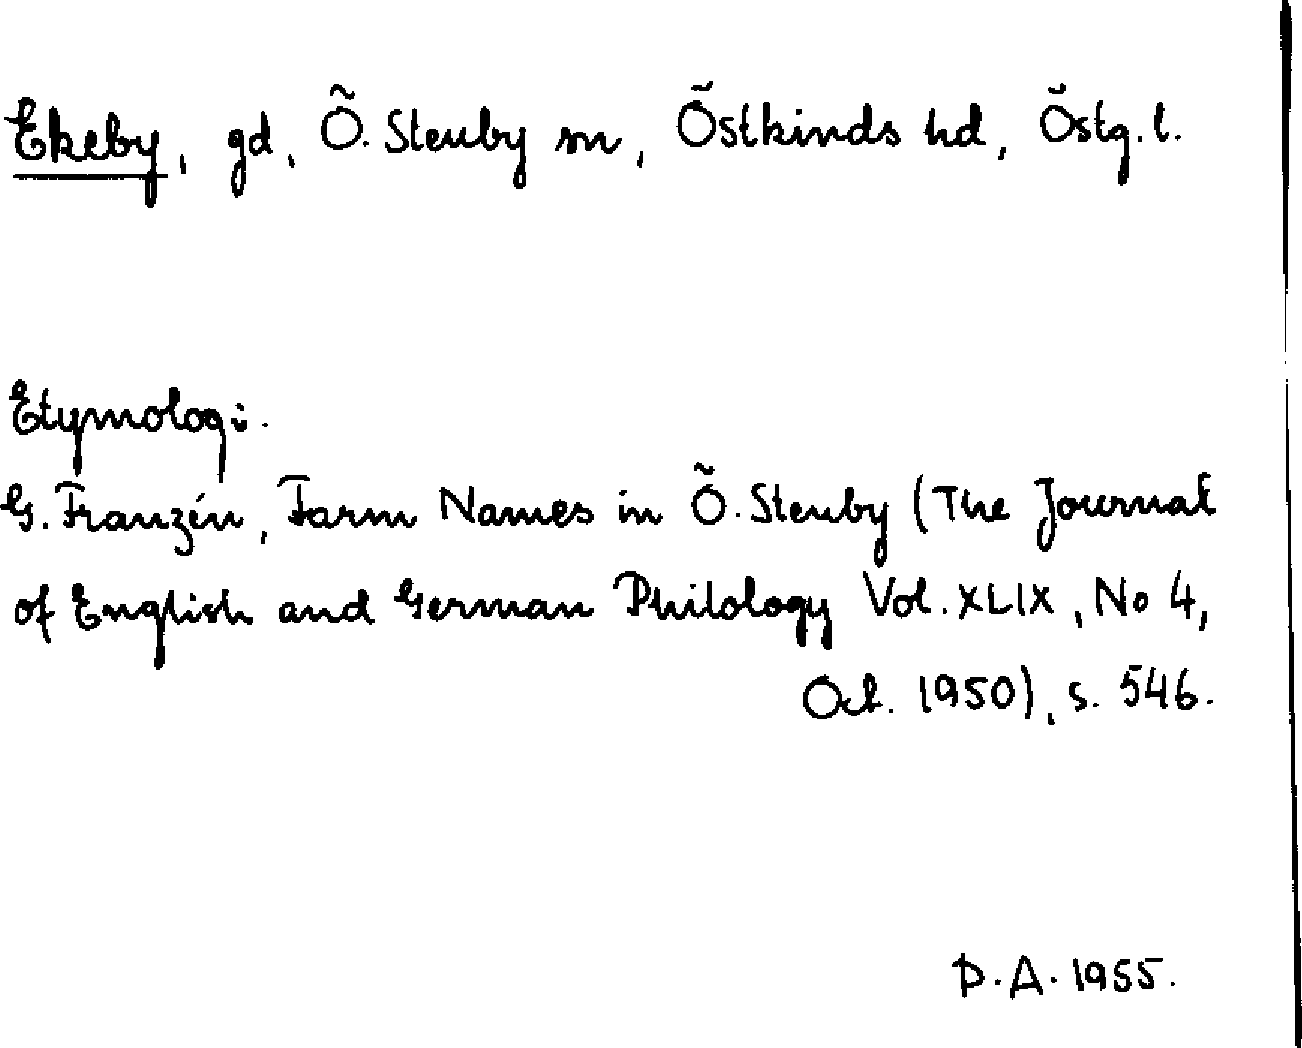 Ekeby, gd, Ö. Stenby sn, Östkinds hd, Östg. l.
Etymologi.
G. Franzén, Farm Names in Ö. Stenby (The Journal
of English and German Philology Vol. XLIX, No 4,
Oct. 1950), s. 546.
D. A. 1955.